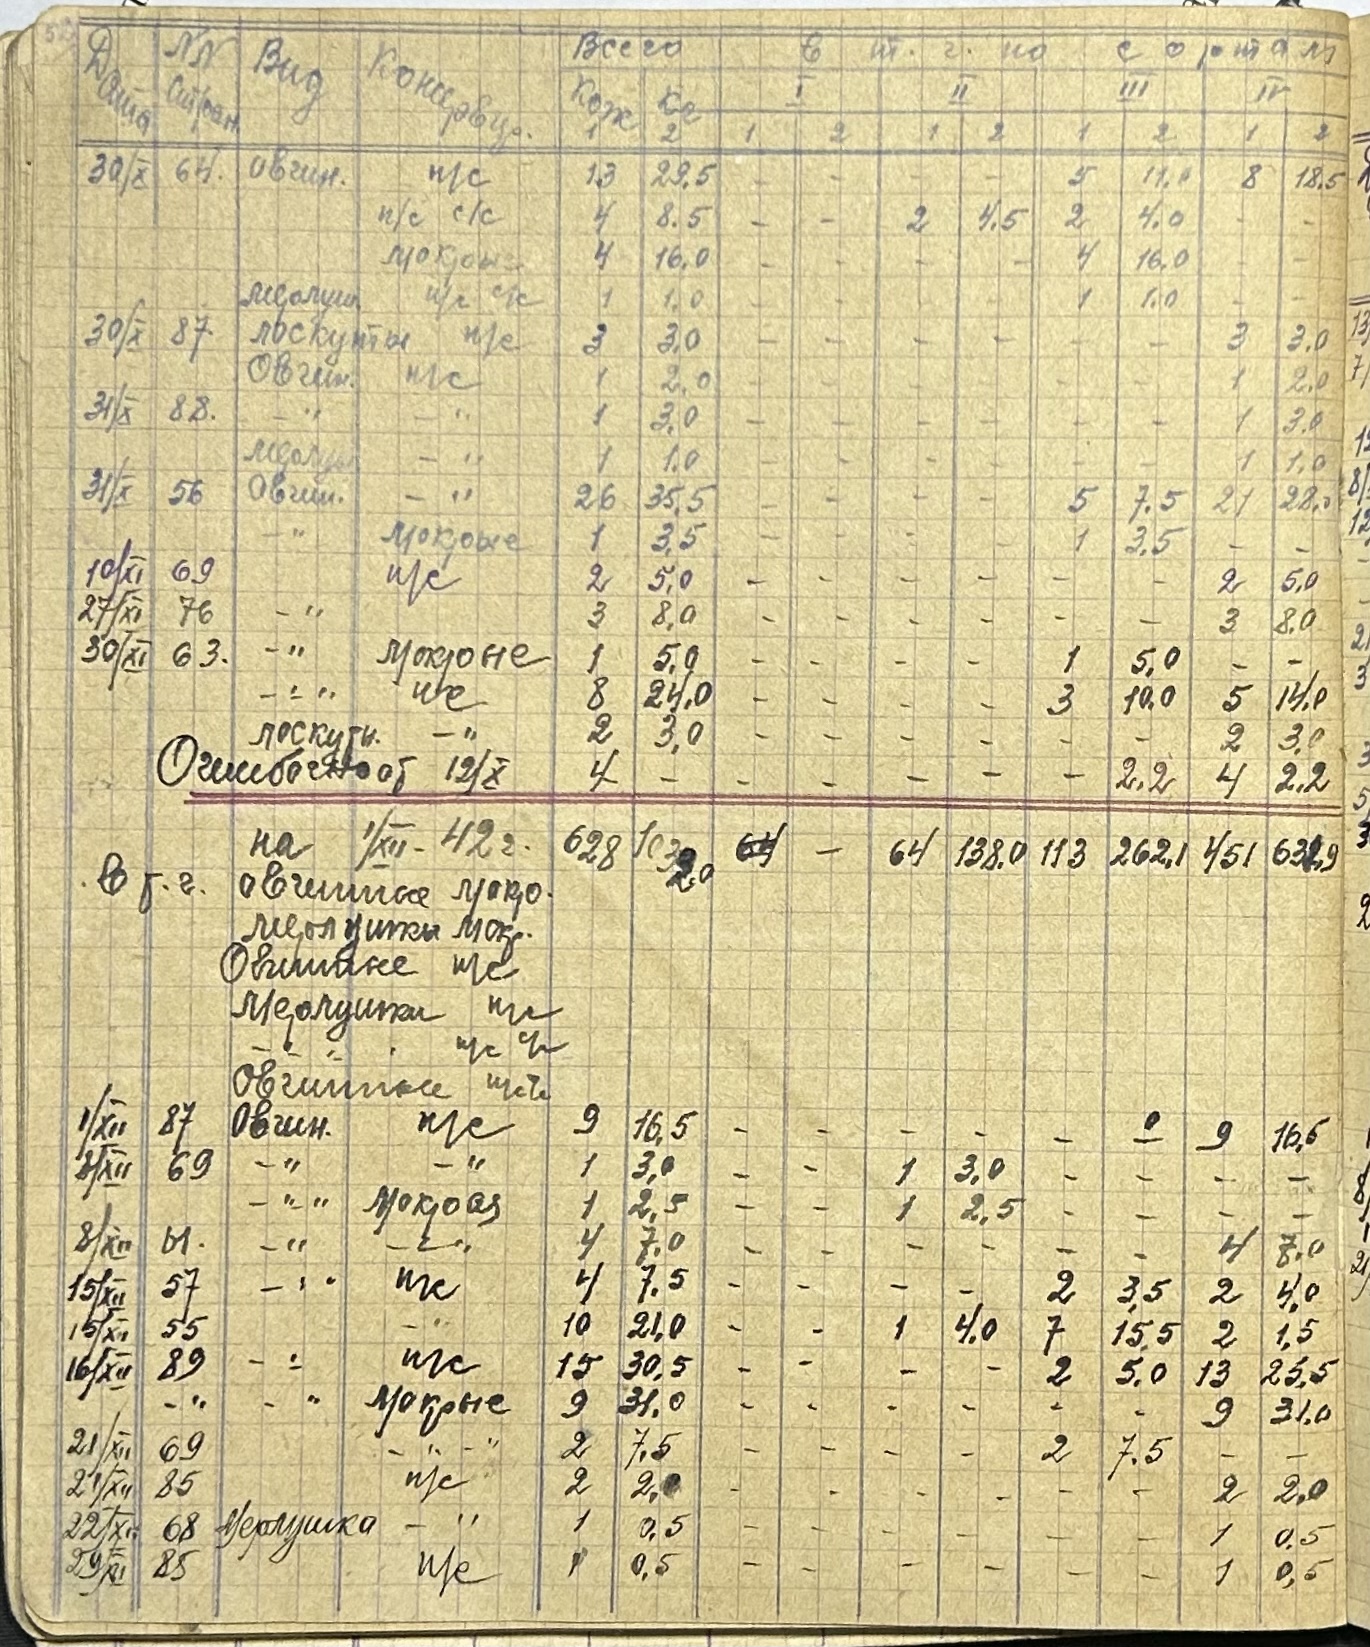 Дата NN стран. Вид Консервир. Всего В т. г. по сортам
Кож Кг I II III IV
1 2 1 2 1 2 1 2 1 2
30/X 64. Овчин. п/с 13 29.5 - - - - 5 11.0 8 18.5
п/с с/с 4 8.5 - - 2 4.5 2 4.0 - -
Мокрые 4 16.0 - - - - 4 16.0 - -
Мерлуш. п/с с/с 1 1.0 - - - - 1 1.0 - -
30/X 87. лоскуты п/с 3 3,0 - - - - - - 3 3.0
Овчин. п/с 1 2.0 - - - - - - 1 2.0
31/X 88. -"- -"- 1 3.0 - - - - - - 1 3.0
Мерлуш -"- 1 1.0 - - - - - - 1 1.0
31/X 56 Овчин. -"- 26 35,5 - - - - 5 7.5 21 28.0
-"- Мокрые 1 3,5 - - - - 1 3.5 - -
10/XI 69 п/с 2 5,0 - - - - - - 2 5.0
27/XI 76 -"- 3 8,0 - - - - - - 3 8.0
30/XI 63. -"- Мокрые 1 5,0 - - - - 1 5,0 - -
-"- п/с 8 24,0 - - - - 3 10.0 5 14.0
лоскуты. -"- 2 3,0 - - - - - - 2 3,0
Ошибочно от 12/X 4 - - - - - - 2.2 4 2.2
на 1/XII - 42 г. 628 64 - 64 138.0 113 262,1 451
В т. г. Овчинные мокр.
Мерлушки мокр.
Овчинные п/с
Мерлушки п/с
-"- п/с с/с
Овчинные п/с с/с
1/XII 87 Овчин. п/с 9 16,5 - - - - - - 9 16,5
8/XII 69 -"- -"- 1 3,0 - - 1 3,0 - - - -
-"- Мокрая 1 2,5 - - 1 2,5 - - - -
8/XII 61. -"- -"- 4 7.0 - - - - - - 4 7.0
15/XII 57 -"- п/с 4 7.5 - - - - 2 3,5 2 4,0
15/XII 55 -"- 10 21,0 - - 1 4.0 7 15,5 2 1,5
16/XII 89 -"- п/с 15 30,5 - - - - 2 5.0 13 25,5
-"- -"- Мокрые 9 31,0 - - - - - - 9 31.0
21/XII 69 -"- -"- 2 7,5 - - - - 2 7.5 - -
21/XII 85 п/с 2 2,0 - - - - - - 2 2,0
22/XII 68 Мерлушка -"- 1 0.5 - - - - - - 1 0.5
29/XII 85 п/с 1 0,5 - - - - - 1 0,5